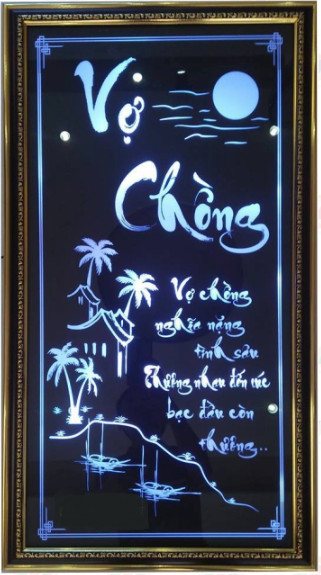 Vợ
Chồng
Vợ chồng
nghĩa nặng
tình sâu
Thương nhau đến lúc
bạc đầu còn
thương..